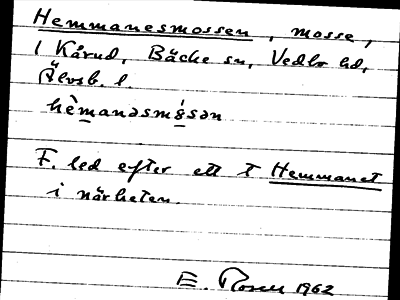 Hemmanesmossen, mosse,
i Kårud, Bäcke sn, Vedbo hd,
Älvsb. l.
hèmanəsmósən
F. led efter ett † Hemmanet
i närheten.
E. Rosell 1962